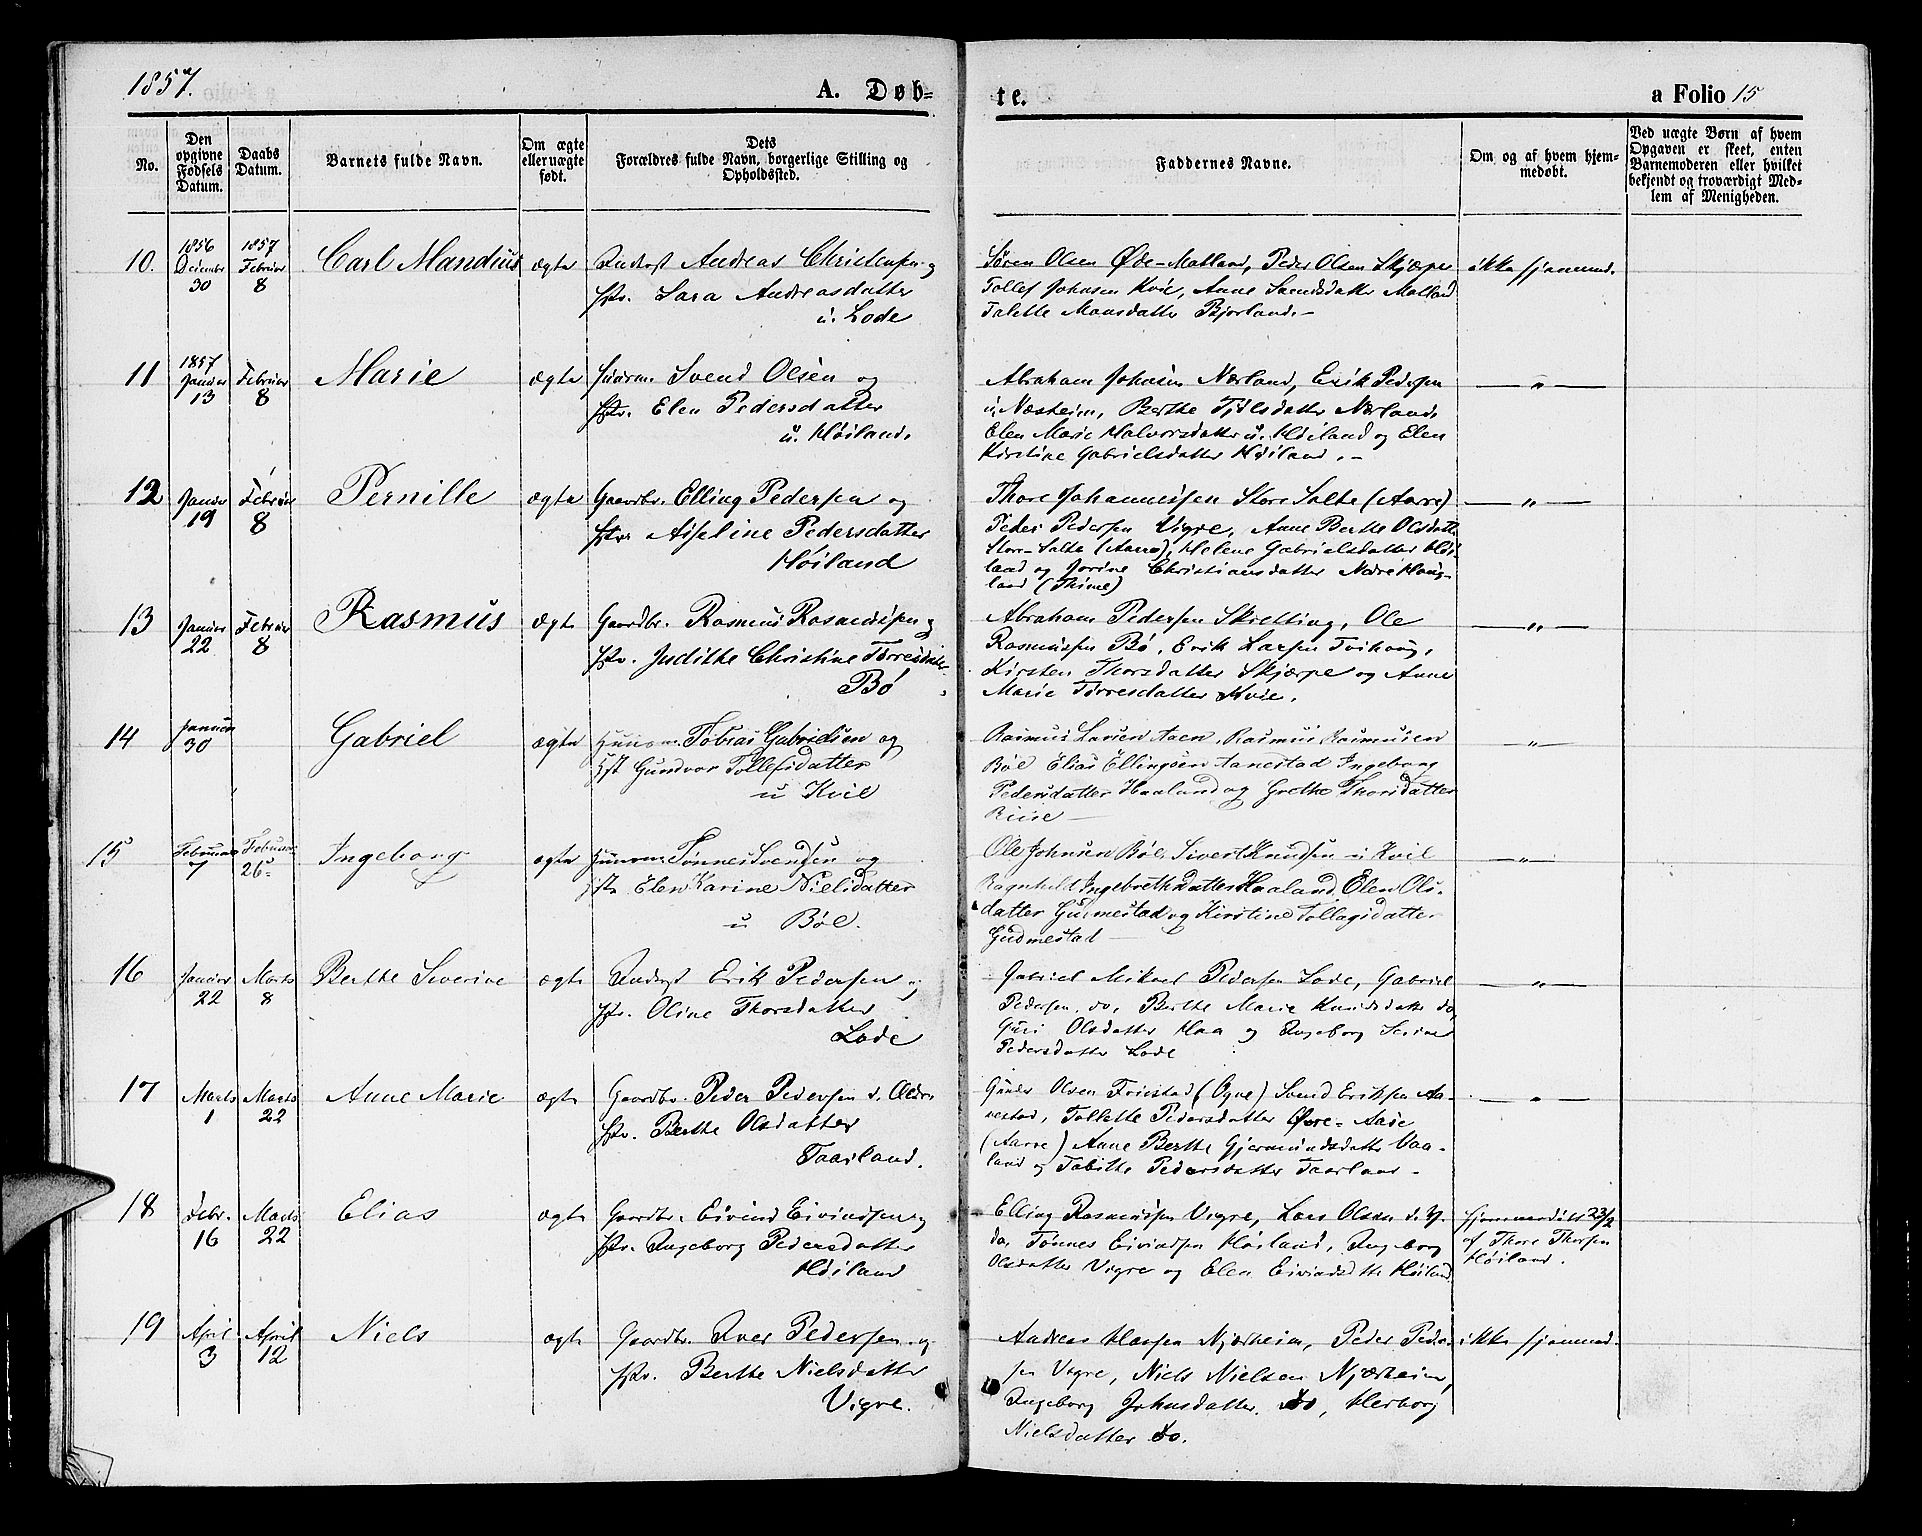 1857.
A. Døb-
te.
a Folio 15
No.
Den
opgivne
Fødsels
Datum.
Daabs
Datum.
Barnets fulde Navn.
Om ægte
eller uægte
født.
Dets
Forældres fulde Navn, borgerlige Stilling og
Opholdssted.
Faddernes Navne.
Om og af hvem hjem-
medøbt.
Ved uægte Børn af hvem
Opgaven er skeet, enten
Barnemoderen eller hvilket
bekjendt og troværdigt Med-
lem af Menigheden.
10.
1856
Decembr
30
1857
Februar
8
Carl Mandius
ægte
Inderst Andreas Christensen og
Hstr. Sara Andreasdatter
u. Lode
Søren Olsen Øde-Matland, Peder Olsen Skjærpe
Tollef Johnsen Kvie, Anne Svendsdatter Matland
Talette Monsdatter Bjorland.-
ikke hjemmed.
11
1857
Januar
13
Februar
8
Marie
ægte
Huusm. Svend Olsen og
Hstr. Elen Pedersdatter
u. Høiland.
Abraham Johnsen Nærland, Erik Pedersen
u. Næsheim, Berthe Njølsdatter Nærland,
Elen Marie Halvorsdatter u. Høiland og Elen
Kirstine Gabrielsdatter Høiland.-
— " —
12
Januar
19
Februar
8
Pernille
ægte
Gaardbr. Elling Pedersen og
Hstr. Aiseline Pedersdatter
Høiland
Thore Johannessen Store Salte (Aarre)
Peder Pedersen Vigre, Anne Berthe Olsdatter
Store-Salte (Aarre), Helene Gabrielsdatter Høi-
land og Jorine Christiansdatter Nedre Haug-
land (Thime)
— " —
13
Januar
22
Februar
8
Rasmus
ægte
Gaardbr. Rasmus Rasmussen og
Hstr. Judithe Christine Tørresdatter
Bø
Abraham Pedersen Skretting, Ole
Rasmussen Bø, Erik Larsen Tvihoug,
Kirsten Thorsdatter Skjærpe og Anne
Marie Tørresdatter Kvie.
— " —
14
Januar
30
Gabriel
ægte
Huusm. Tobias Gabrielsen og
Hst Gundvor Tollefsdatter
u Kvil
Rasmus Larsen Aaen, Rasmus Rasmussen
Bøe Elias Ellingsen Aanestad Ingeborg
Pedersdatter Haaland og Grethe Thorsdatter
Riise —
— " —
15
Februar
7
Februar
26
Ingeborg
ægte
Huusm. Tønnes Svendsen og
Hstr Elen Karine Nielsdatter
u Bøe.
Ole Johnsen Bøe, Sivert Knudsen u Kvil
Ragnhild Ingebrethsdatter Haaland, Elen Ols-
datter Gudmestad og Kirstine Tollagsdatter
Gudmestad —
— " —
16
Januar
22
Marts
8
Berthe Severine
ægte
Inderst Erik Pedersen og
Hstr. Oline Thorsdatter
Lode
Gabriel Mikael Pedersen Lode, Gabriel
Pedersen do, Berthe Marie Knudsdatter do,
Guri Olsdatter Haa og Ingeborg Serine
Pedersdatter Lode
— " —
17
Marts
1
Marts
22
Anne Marie
ægte
Gaardbr. Peder Pedersen d. Ældre
Hstr. Berthe Olsdatter
Taarland.
Gunder Olsen Fuistad (Ogne) Svend Eriksen Aa-
nestad, Tollette Pedersdatter Øvre-Aase
(Aarre) Anne Berthe Gjermundsdatter Vaa-
land og Tabitte Pedersdatter Taarland -
— " —
18
Febr.
16
Marts
22
Elias
ægte
Gaardbr. Eivind Eivindsen og
Hstr. Ingeborg Pedersdatter
Høiland
Elling Rasmussen Vigre, Lars Olsen d. Y.
do, Tønnes Eivindsen Høiland, Ingeborg
Olsdatter Vigre og Elen Eivindsdtr Høiland.
hjemmedøbt 23/2
af Thore Thorsen
Høiland.
19
April
3
April
12
Niels
ægte
Gaardbr. Iver Pedersen og
Hstr. Berthe Nielsdatter
Vigre.
Andreas Hansen Njærheim, Peder Peder-
sen Vigre, Niels Nielsen Njærheim,
Ingeborg Johnsdatter do, Herborg
Nielsdatter do.
ikke hjemmed.